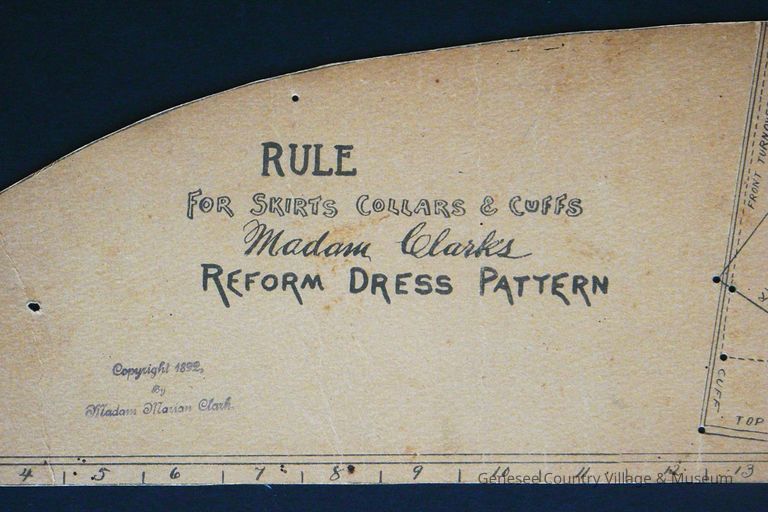 RULE
FOR SKIRTS COLLARS & CUFFS
Madam Clarks
REFORM DRESS PATTERN
Copyright 1892,
By
Madam Marian Clark.
FRONT TURNOVE
CUFF
TOP
4 5 6 7 8 9 10 11 12 13
Genesee Country Village & Museum